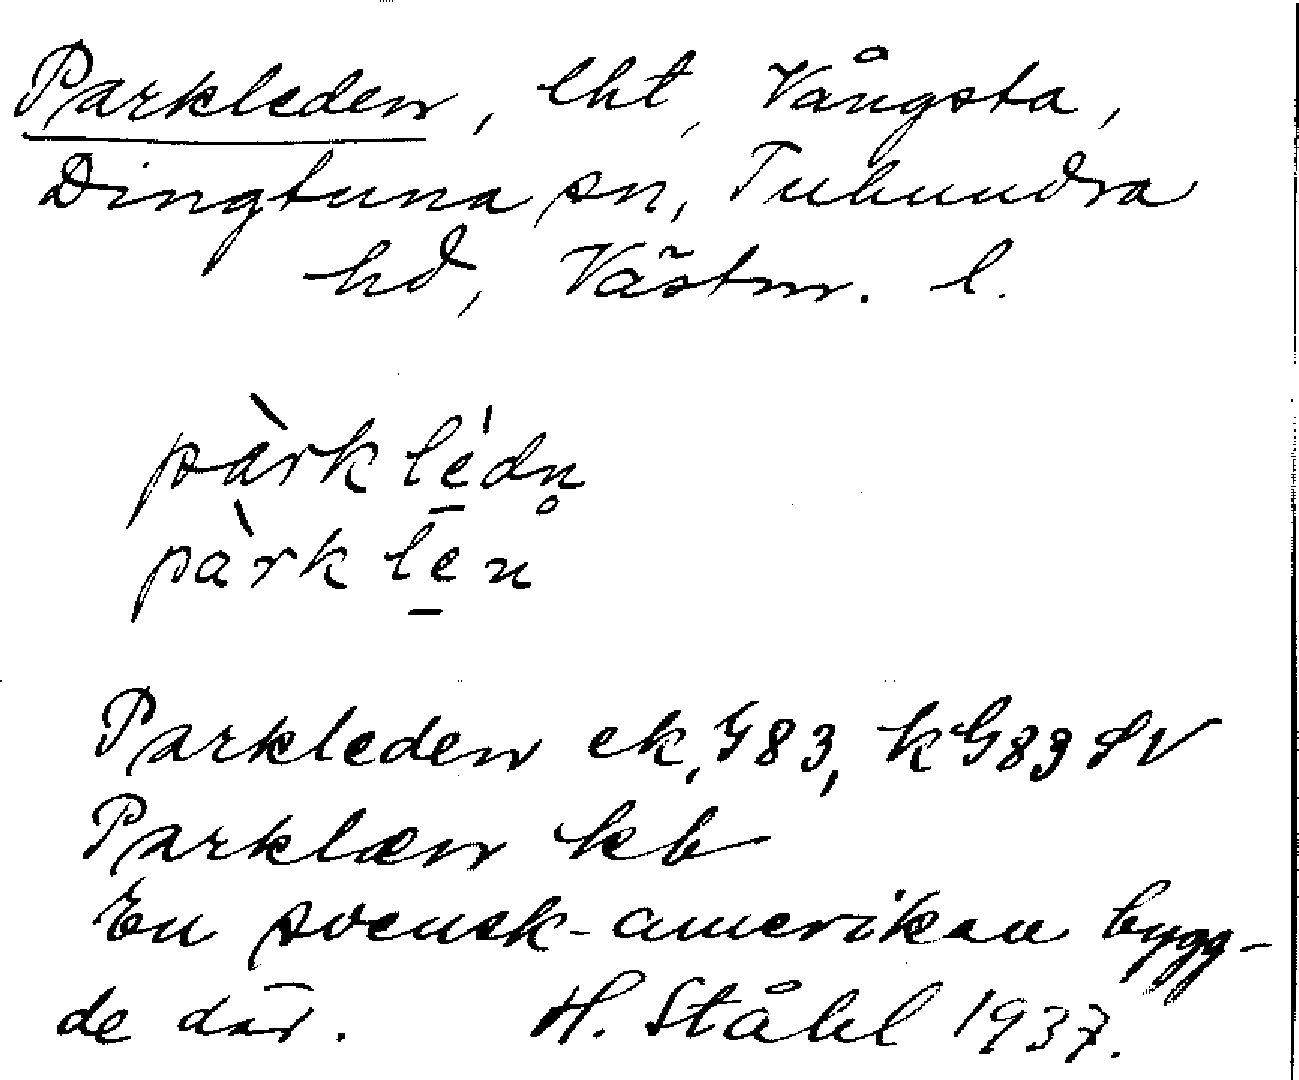 Parkleden, lht, Vångsta,
Dingtuna sn, Tuhundra
hd, Västm. l.
pàrkle̱´dn̥
pàrkle̱n
Parkleden ek, G83, kG89 SV
Parklæn kb
En svensk-amerikan bygg-
de där. H. Ståhl 1937.